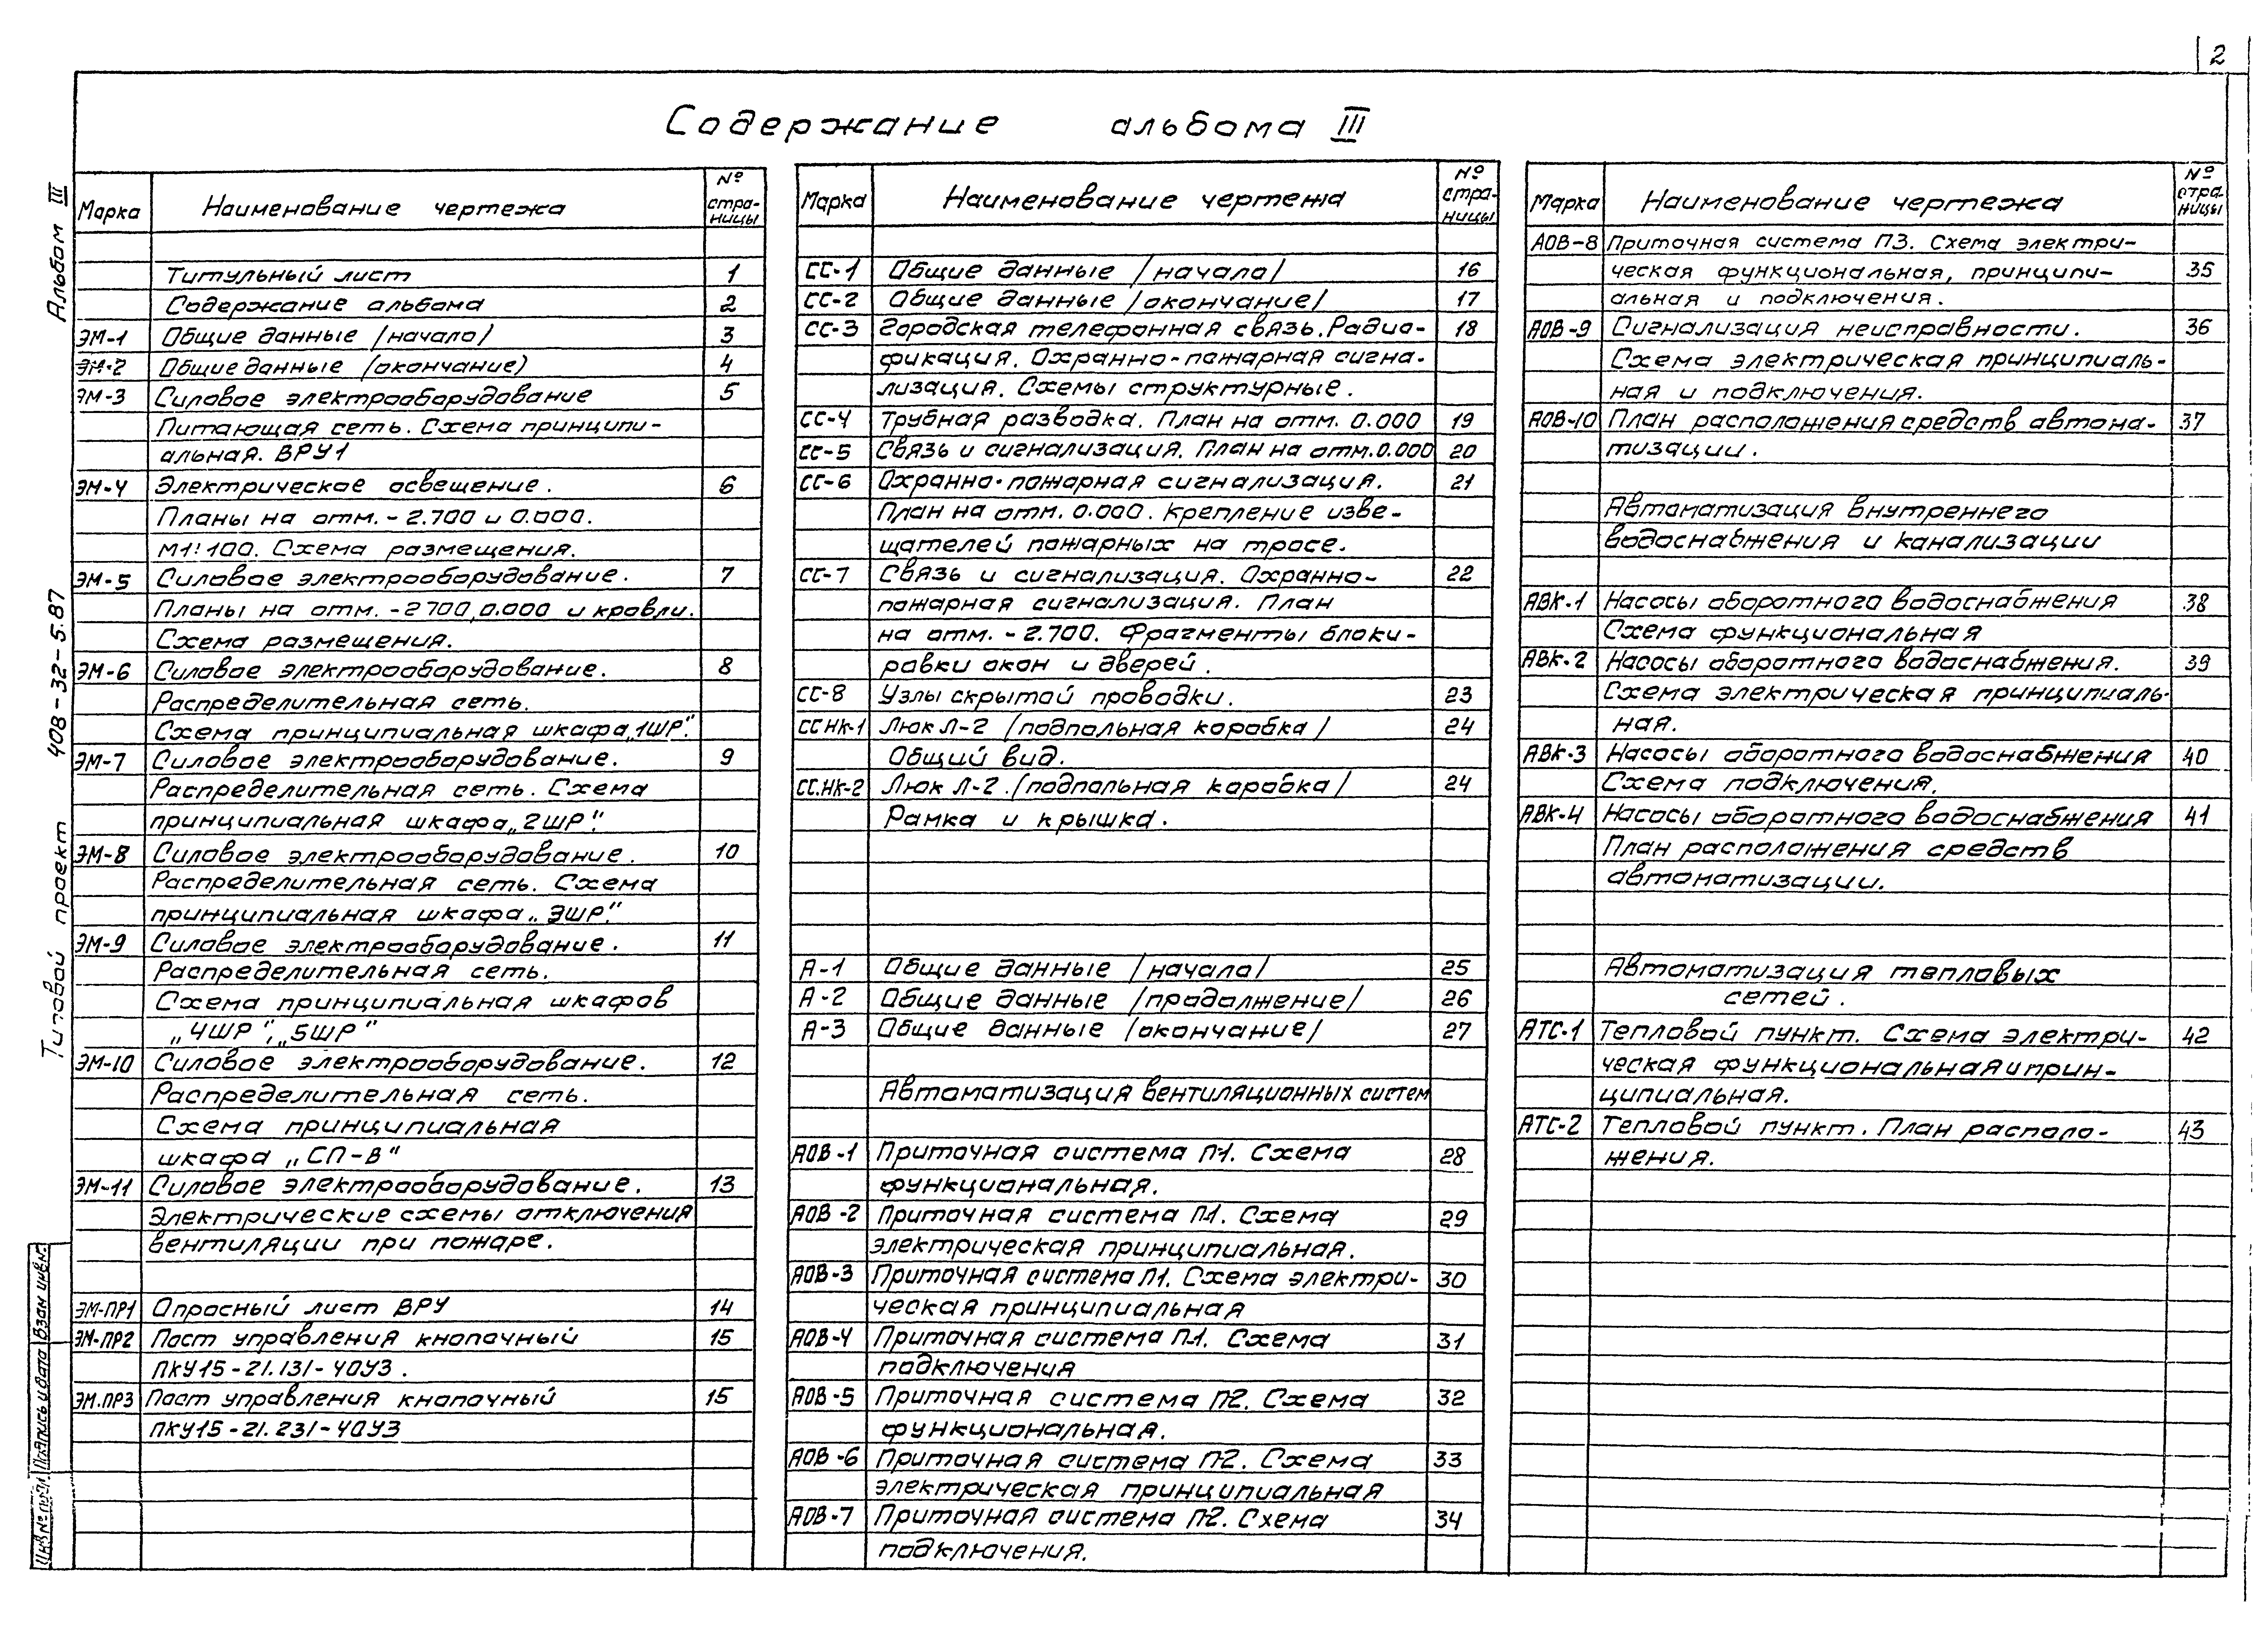 2
Содержание альбома III
Альбом III
Типовой проект 408-32-5.87
Инв№подл Подпись и дата Взам инв.№
Марка Наименование чертежа № стра-ницы
Титульный лист 1
Содержание альбома 2
ЭМ-1 Общие данные /начало/ 3
ЭМ-2 Общие данные (окончание) 4
ЭМ-3 Силовое электрооборудование 5
Питающая сеть. Схема принципи-
альная. ВРУ1
ЭМ-4 Электрическое освещение. 6
Планы на отм. -2.700 и 0.000.
М1:100. Схема размещения.
ЭМ-5 Силовое электрооборудование. 7
Планы на отм. -2700, 0.000 и кровли.
Схема размещения.
ЭМ-6 Силовое электрооборудование. 8
Распределительная сеть.
Схема принципиальная шкафа „1ШР".
ЭМ-7 Силовое электрооборудование. 9
Распределительная сеть. Схема
принципиальная шкафа „2ШР".
ЭМ-8 Силовое электрооборудование. 10
Распределительная сеть. Схема
принципиальная шкафа „3ШР".
ЭМ-9 Силовое электрооборудование. 11
Распределительная сеть.
Схема принципиальная шкафов
„4ШР", „5ШР"
ЭМ-10 Силовое электрооборудование. 12
Распределительная сеть.
Схема принципиальная
шкафа „СП-В"
ЭМ-11 Силовое электрооборудование. 13
Электрические схемы отключения
вентиляции при пожаре.
ЭМ-ПР1 Опросный лист ВРУ 14
ЭМ-ПР2 Пост управления кнопочный 15
ПКУ15-21.131-40У3.
ЭМ.ПР3 Пост управления кнопочный 15
ПКУ15-21.231-40У3
Марка Наименование чертежа № стра-ницы
СС-1 Общие данные /начало/ 16
СС-2 Общие данные /окончание/ 17
СС-3 Городская телефонная связь. Радио- 18
фикация. Охранно-пожарная сигна-
лизация. Схемы структурные.
СС-4 Трубная разводка. План на отм. 0.000 19
СС-5 Связь и сигнализация. План на отм. 0.000 20
СС-6 Охранно-пожарная сигнализация. 21
План на отм. 0.000. Крепление изве-
щателей пожарных на тросе.
СС-7 Связь и сигнализация. Охранно- 22
пожарная сигнализация. План
на отм. -2.700. Фрагменты блоки-
ровки окон и дверей.
СС-8 Узлы скрытой проводки. 23
ССНК-1 Люк Л-2 /подпольная коробка/ 24
Общий вид.
СС.НК-2 Люк Л-2. /подпольная коробка/ 24
Рамка и крышка.
А-1 Общие данные /начало/ 25
А-2 Общие данные /продолжение/ 26
А-3 Общие данные /окончание/ 27
Автоматизация вентиляционных систем
АОВ-1 Приточная система П1. Схема 28
функциональная.
АОВ-2 Приточная система П1. Схема 29
электрическая принципиальная.
АОВ-3 Приточная система П1. Схема электри- 30
ческая принципиальная
АОВ-4 Приточная система П1. Схема 31
подключения
АОВ-5 Приточная система П2. Схема 32
функциональная.
АОВ-6 Приточная система П2. Схема 33
электрическая принципиальная
АОВ-7 Приточная система П2. Схема 34
подключения.
Марка Наименование чертежа № стра-ницы
АОВ-8 Приточная система П3. Схема электри-
ческая функциональная, принципи- 35
альная и подключения.
АОВ-9 Сигнализация неисправности. 36
Схема электрическая принципиаль-
ная и подключения.
АОВ-10 План расположения средств автома- 37
тизации.
Автоматизация внутреннего
водоснабжения и канализации
АВК-1 Насосы оборотного водоснабжения 38
Схема функциональная
АВК-2 Насосы оборотного водоснабжения. 39
Схема электрическая принципиаль-
ная.
АВК-3 Насосы оборотного водоснабжения 40
Схема подключения.
АВК-4 Насосы оборотного водоснабжения 41
План расположения средств
автоматизации.
Автоматизация тепловых
сетей.
АТС-1 Тепловой пункт. Схема электри- 42
ческая функциональная и прин-
ципиальная.
АТС-2 Тепловой пункт. План располо- 43
жения.